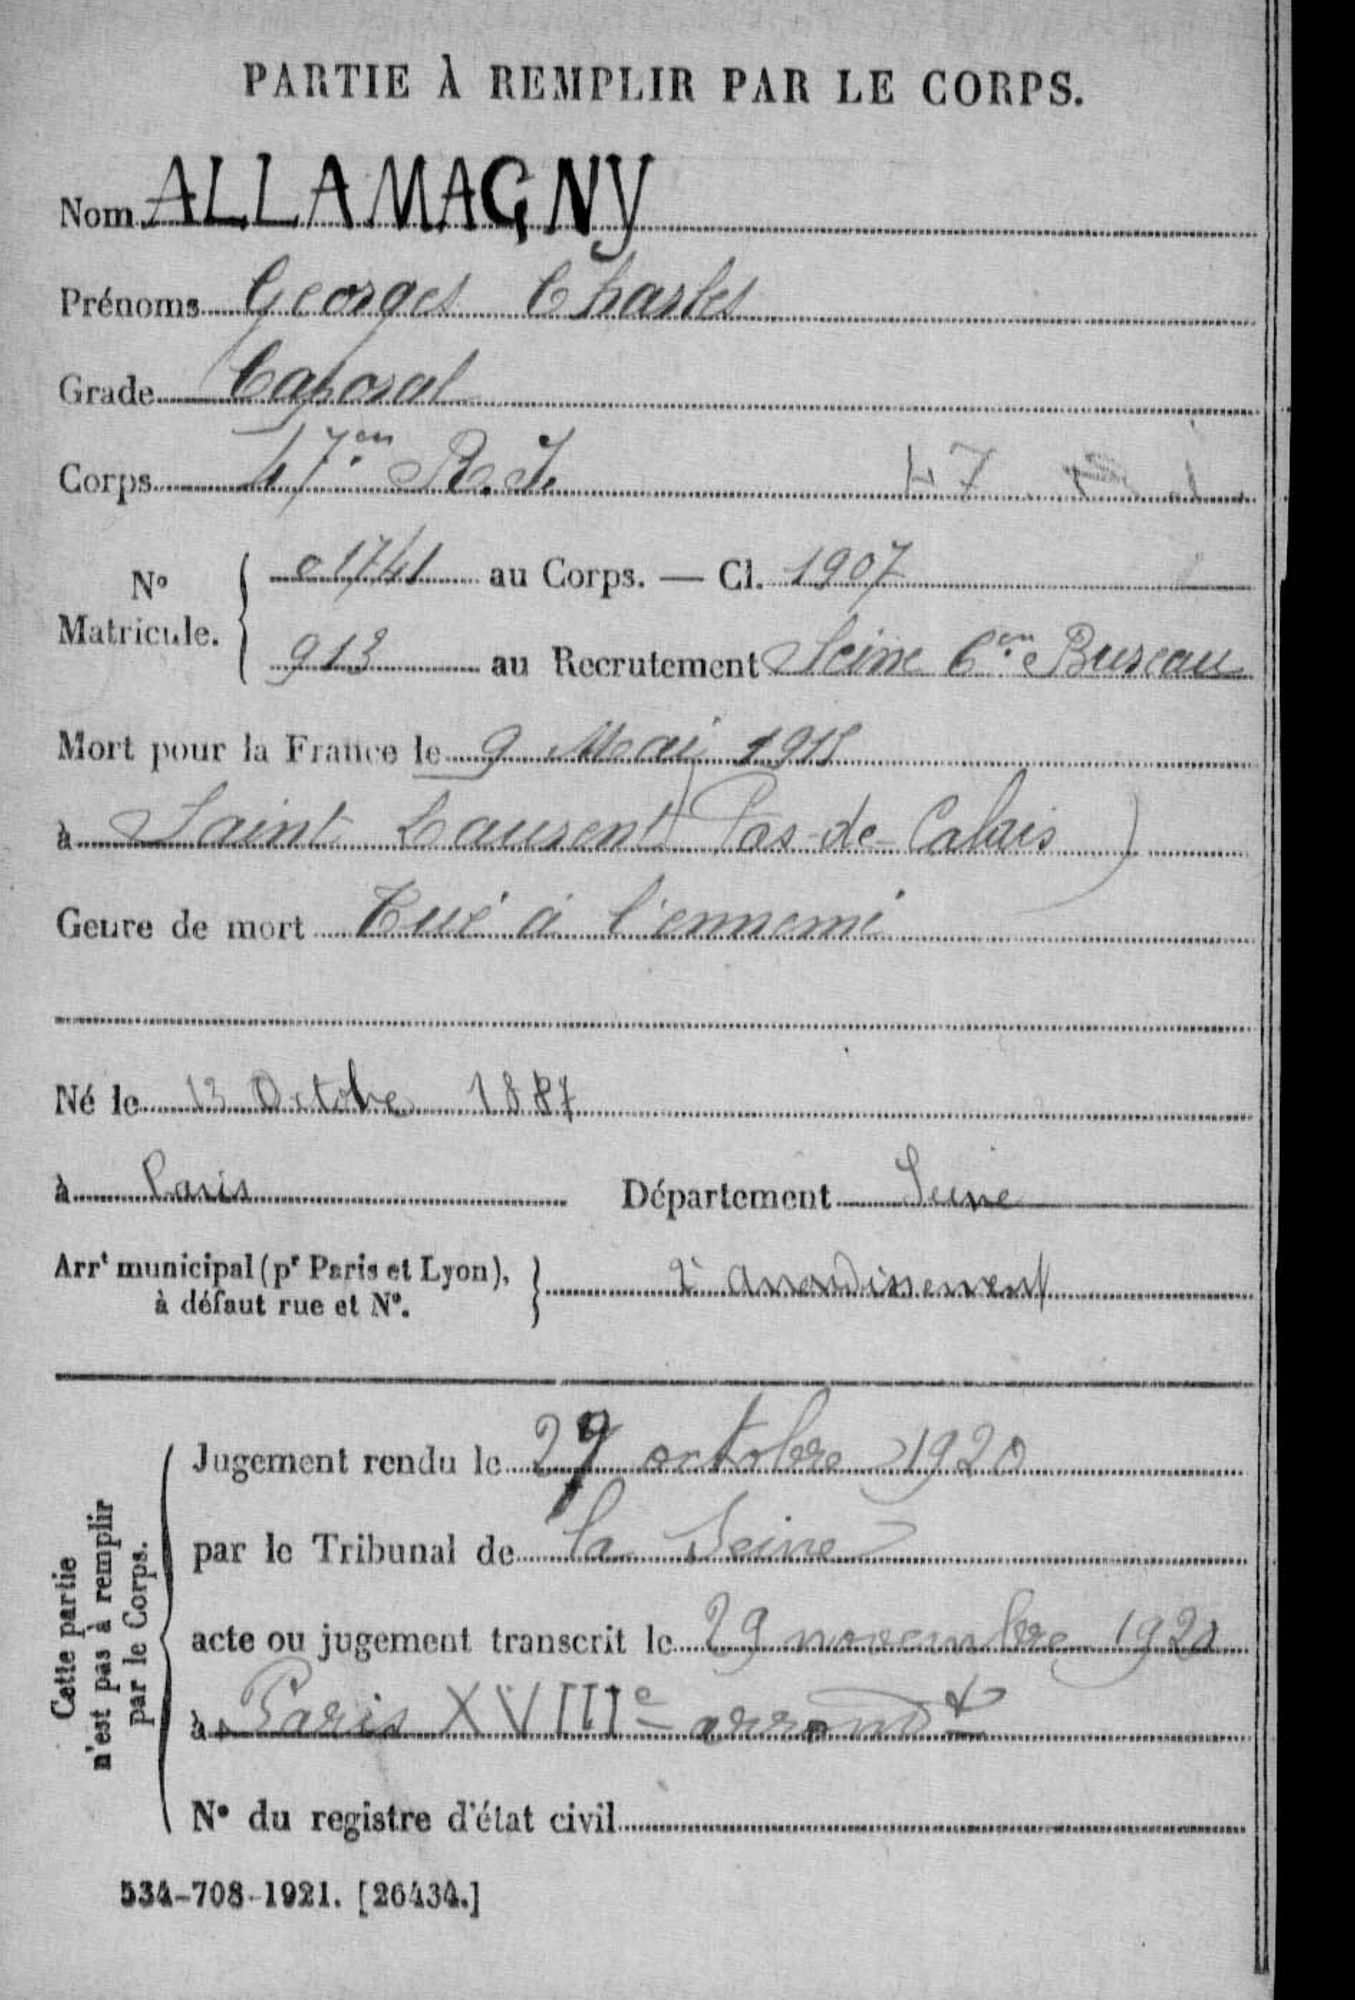 PARTIE À REMPLIR PAR LE CORPS.
Nom ALLAMAGNY
Prénoms Georges Charles
Grade Caporal
Corps 47em R.I. 47
N° Matricule. 01741 au Corps. — Cl. 1907
913 au Recrutement Seine 6em Bureau
Mort pour la France le 9 Mai 1915
à Saint Laurent (Pas-de-Calais)
Genre de mort Tué à l'ennemi
Né le 13 Octobre 1887
à Paris Département Seine
Arrt municipal (pr Paris et Lyon), à défaut rue et N°. 2e arrondissement
Cette partie n'est pas à remplir par le Corps.
Jugement rendu le octobre 1920
par le Tribunal de la Seine
acte ou jugement transcrit le 29 novembre 1920
à Paris XVIIIe arrondt
N° du registre d'état civil
534-708-1921. [26434.]